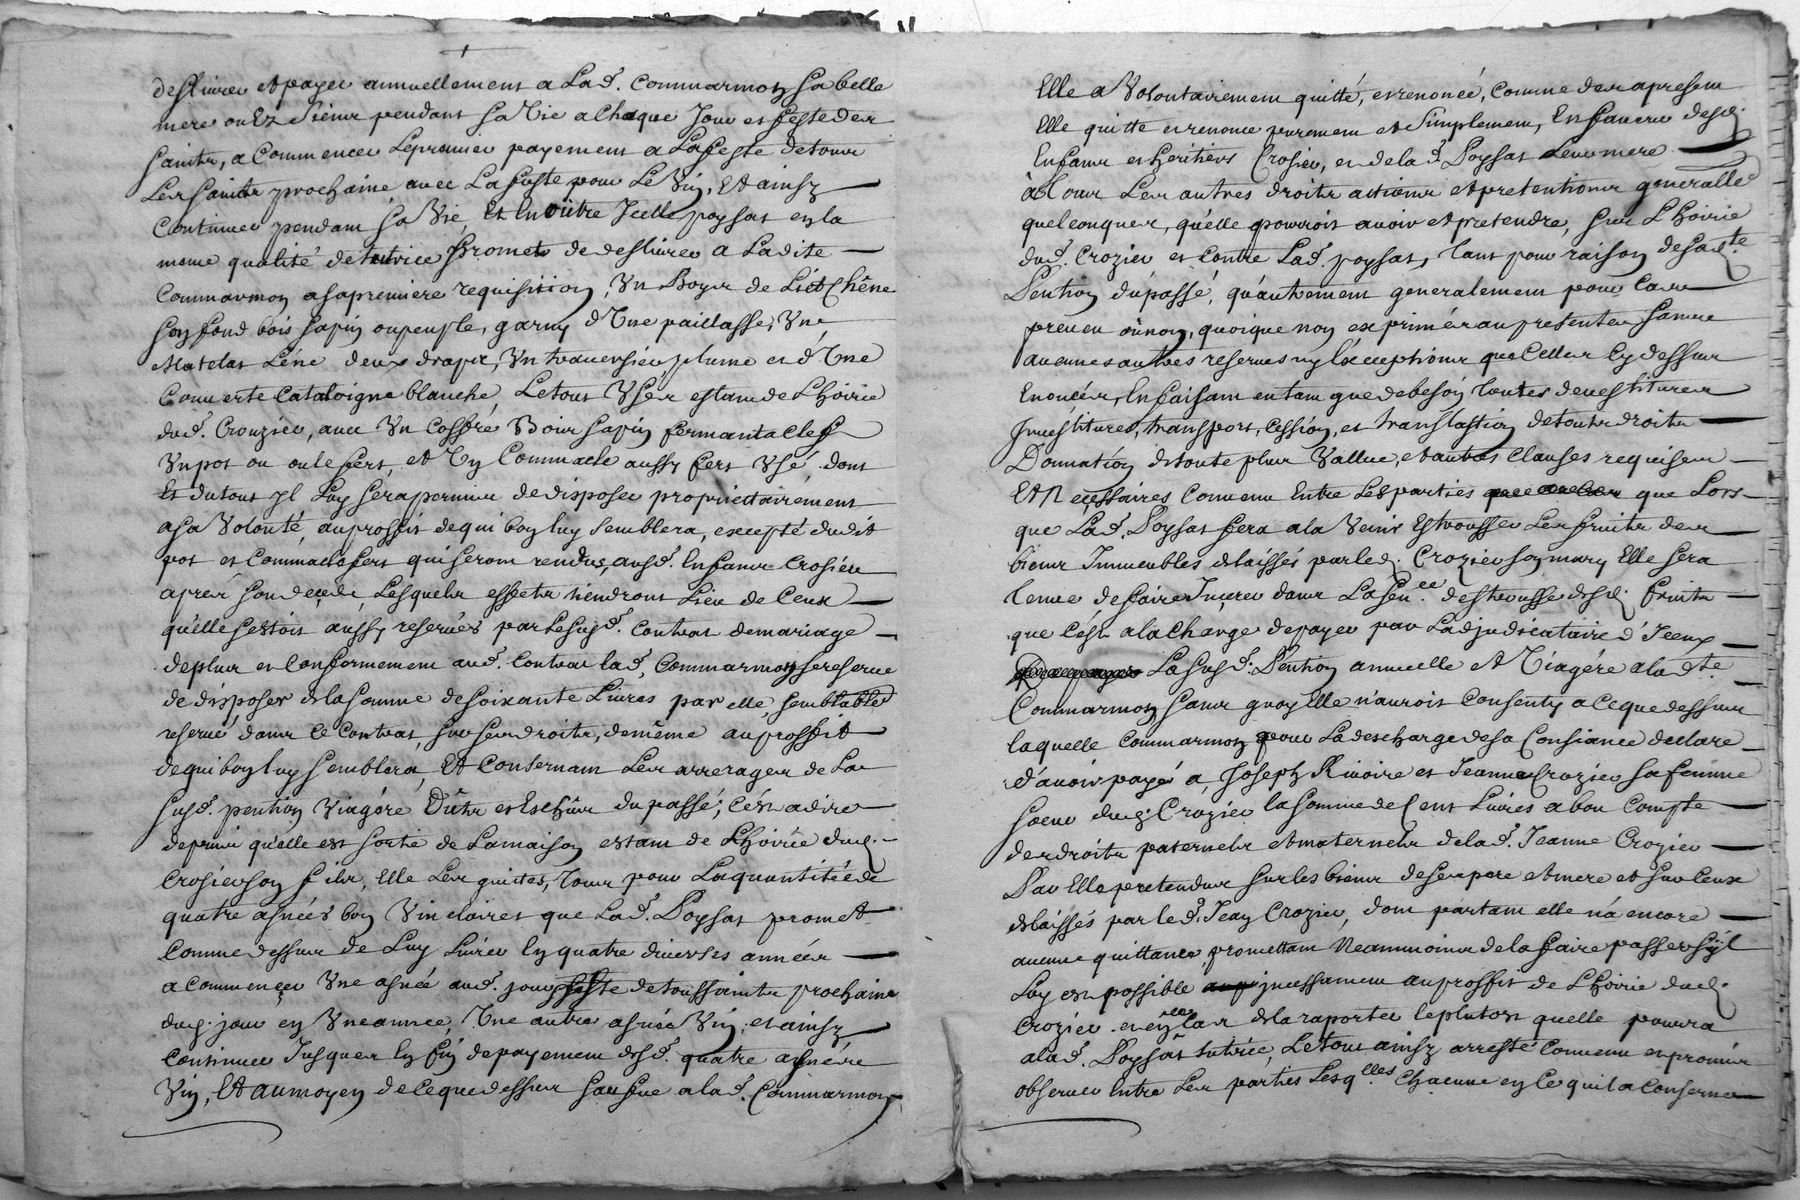 deslivrer et payer annuellement a Lad. Commarmon sa belle
mere ou Ez siens pendant sa Vie a Chaque Jour et feste des
saints, a Commencer Le premier payement a La feste de tous
Les saints prochaine avec La fuste pour Le Vin, Et ainsy
Continuer pendant sa Vie, Et En oûtre Jcelle poysat en la
meme qualité de tutrice Promet de deslivrer a Ladite
Commarmon a sa premiere requisition, Un Boys de Lict Chêne
son fond bois sapin ou peuple, garny d'Une paillasse, Une
Matelas Léne deux draps, Un traversier plume et d'Une
Couverte Cataloigne blanche Le tout Usés estant de Lhoirie
dud. Crouzier, avec Un Coffre Bois sapin fermant a Clef
Un pot ou oule fert, et Un Commacle aussy fert Usé dont
Et du tout Jl Luy sera permis de disposer proprietairément
a sa Volonté au proffit de qui bon luy semblera, excepté dudit
pot et Commacle fert qui seront rendus, ausd. Enfans Crosier
aprés son decede, Lesquels effets tiendront Lieu de Ceux
qu'elle s'estoit aussy reservés par Le susd. Contrat de mariage
de plus et Conformement aud. Contrat lad. Commarmon se reserve
de disposer de la somme de soixante Livres par elle semblable
reservé dans le Contrat, sur ses droits, de même au proffit
de qui bon luy semblera, Et Consernant Les arrerages de La
susd. pention Viagére Dûts et Eschûs du passé; c'est a dire
depuis qu'elle est sortie de La maison estant de Lhoirie dud.
Crosier son fils, Elle Les quittes, Tous pour La quantité de
quatre asnées bon Vin clairet que Lad. Poysat promet
Comme dessus de Luy Livrer En quatre diverses années
a Commençer Une asnée aud. jour feste de toussaints prochaine
dud. jour en Une année, Une autre asnée Vin, et ainsy
Continuer Jusques En fin de payement desd. quatre asnées
Vin, Et au moyen de Ceque dessus sauf que a lad. Commarmon
Elle a Volontairement quitté, et renoncé, Comme des a present
Elle quitte et renonce purement et simplement, En faveur desd.
Enfans et heritiers Crosier, et de lad. Poysat Leur mere
à Tous Les autres droits actions et pretentions generalle
quelconques, qu'elle pourroit avoir et pretendre, sur Lhoirie
dud. Crozier et Contre Lad. poysat, Tant pour raison de sadte.
Pention du passé, qu'autrement generalement pour Cas
preveu où non, quoique non exprimés au present sans
aucunes autres reserves ny Exceptions que Celles Cy dessus
Enoncés, En faisant en tant que de besoin Toutes devestitures
Jnvestitures, transport, Cession, et translastion de touts droits
Donnation de toute plus Vallue, et autres Clauses requises
Et Neçessaires Convenu Entre Les parties que Lors
que Lad. Poysat fera a la Venir Estrousser Les fruits des
biens Jmmeubles delaissés par led. Crozier son mary Elle sera
Tenue de faire Jnçerer dans La Sence. d'estrousse desd. fruits
que c'est a la Charge de payer par Ladjudicataire d'Jceux
La susd. Pention annuelle et Viagére a ladte.
Commarmon sans quoy Elle n'auroit Consenty a Ceque dessus
laquelle Commarmon pour La descharge de sa Consiance declare
d'avoir payé a Joseph Rivoire et Jeanne Crozier sa femme
soeur dud. Crozier la somme de Cent Livres a bon Compte
des droits paternels et maternels de lad. Jeanne Crozier
Par Elle pretendus sur les biens de ses pere et mere et sur Ceux
delaissés par led. Jean Crozier, dont partant elle n'a encore
aucune quittance, promettant Neammoins de la faire passer s'jl
Luy est possible jncessament au proffit de Lhoirie dud.
Crozier et en Ce Cas de la raporter le plutost quelle pourra
a lad. Poysat tutrice, Le tout ainsy arresté Convenu et promis
observer Entre Les parties Lesqlles Chacune en Ce qui la Conserne